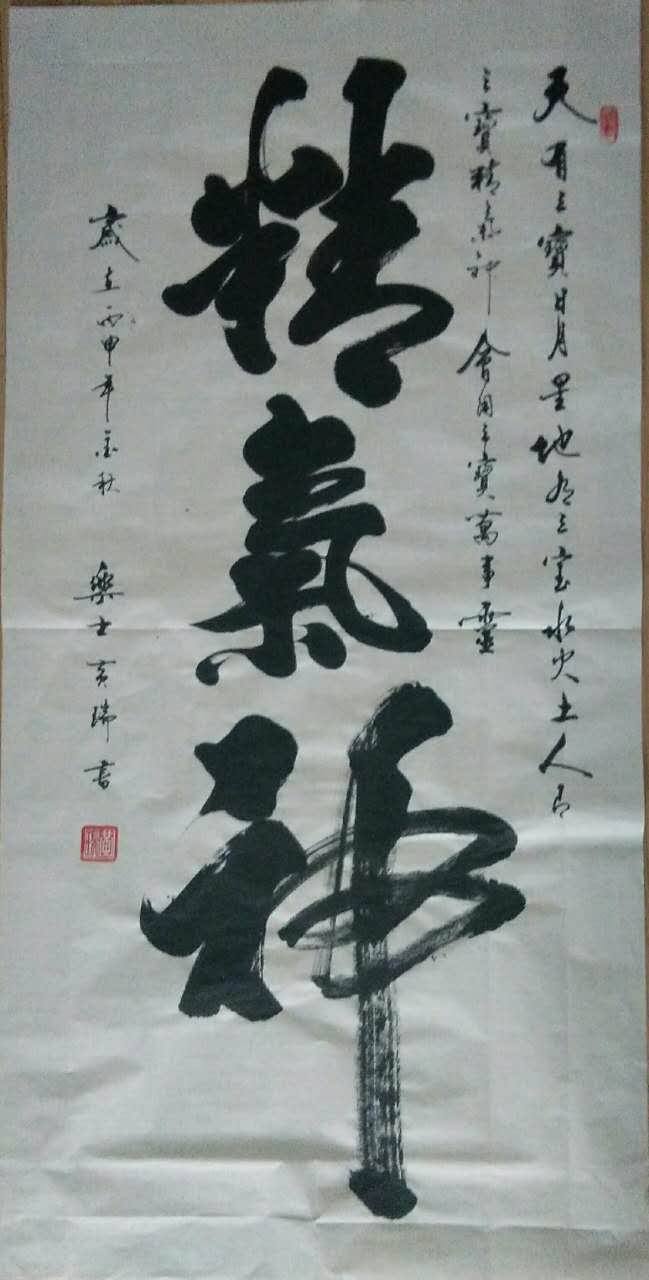 天有三寶日月星地有三寶水火土人有
三寶精氣神會用三寶萬事靈
精氣神
歲在丙申年金秋
樂士黃瑞書